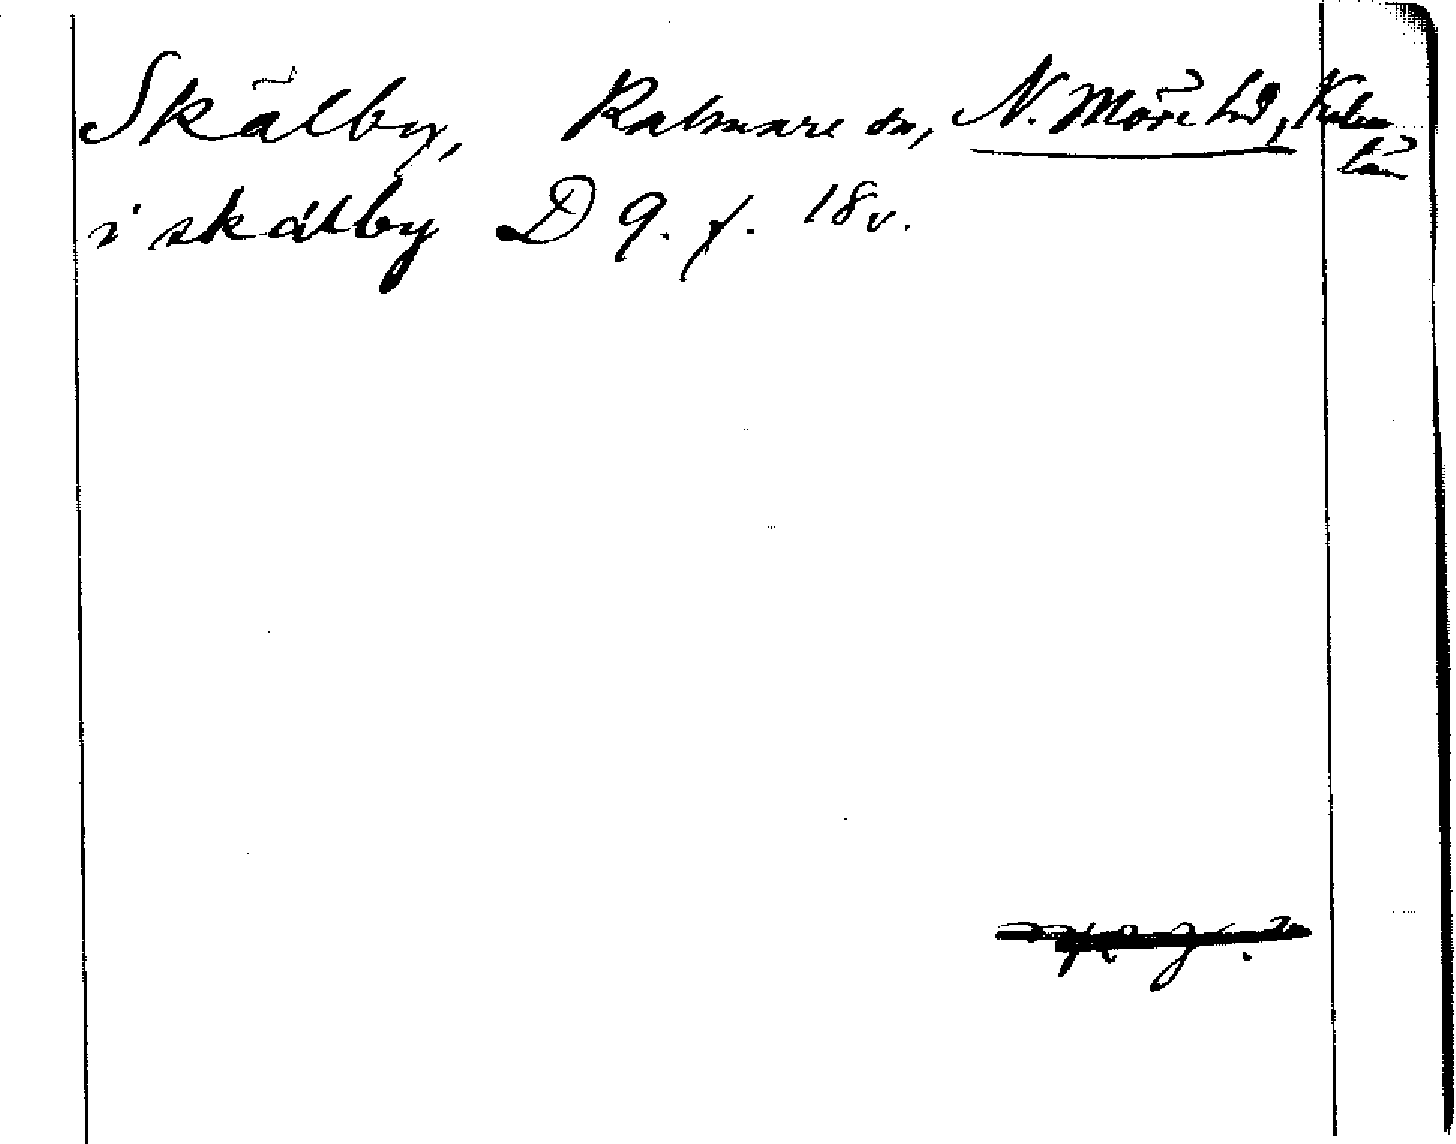 Skälby, Kalmare sn, N. Möre hd, Kalm
län
i skälby D 9. f. 18v.